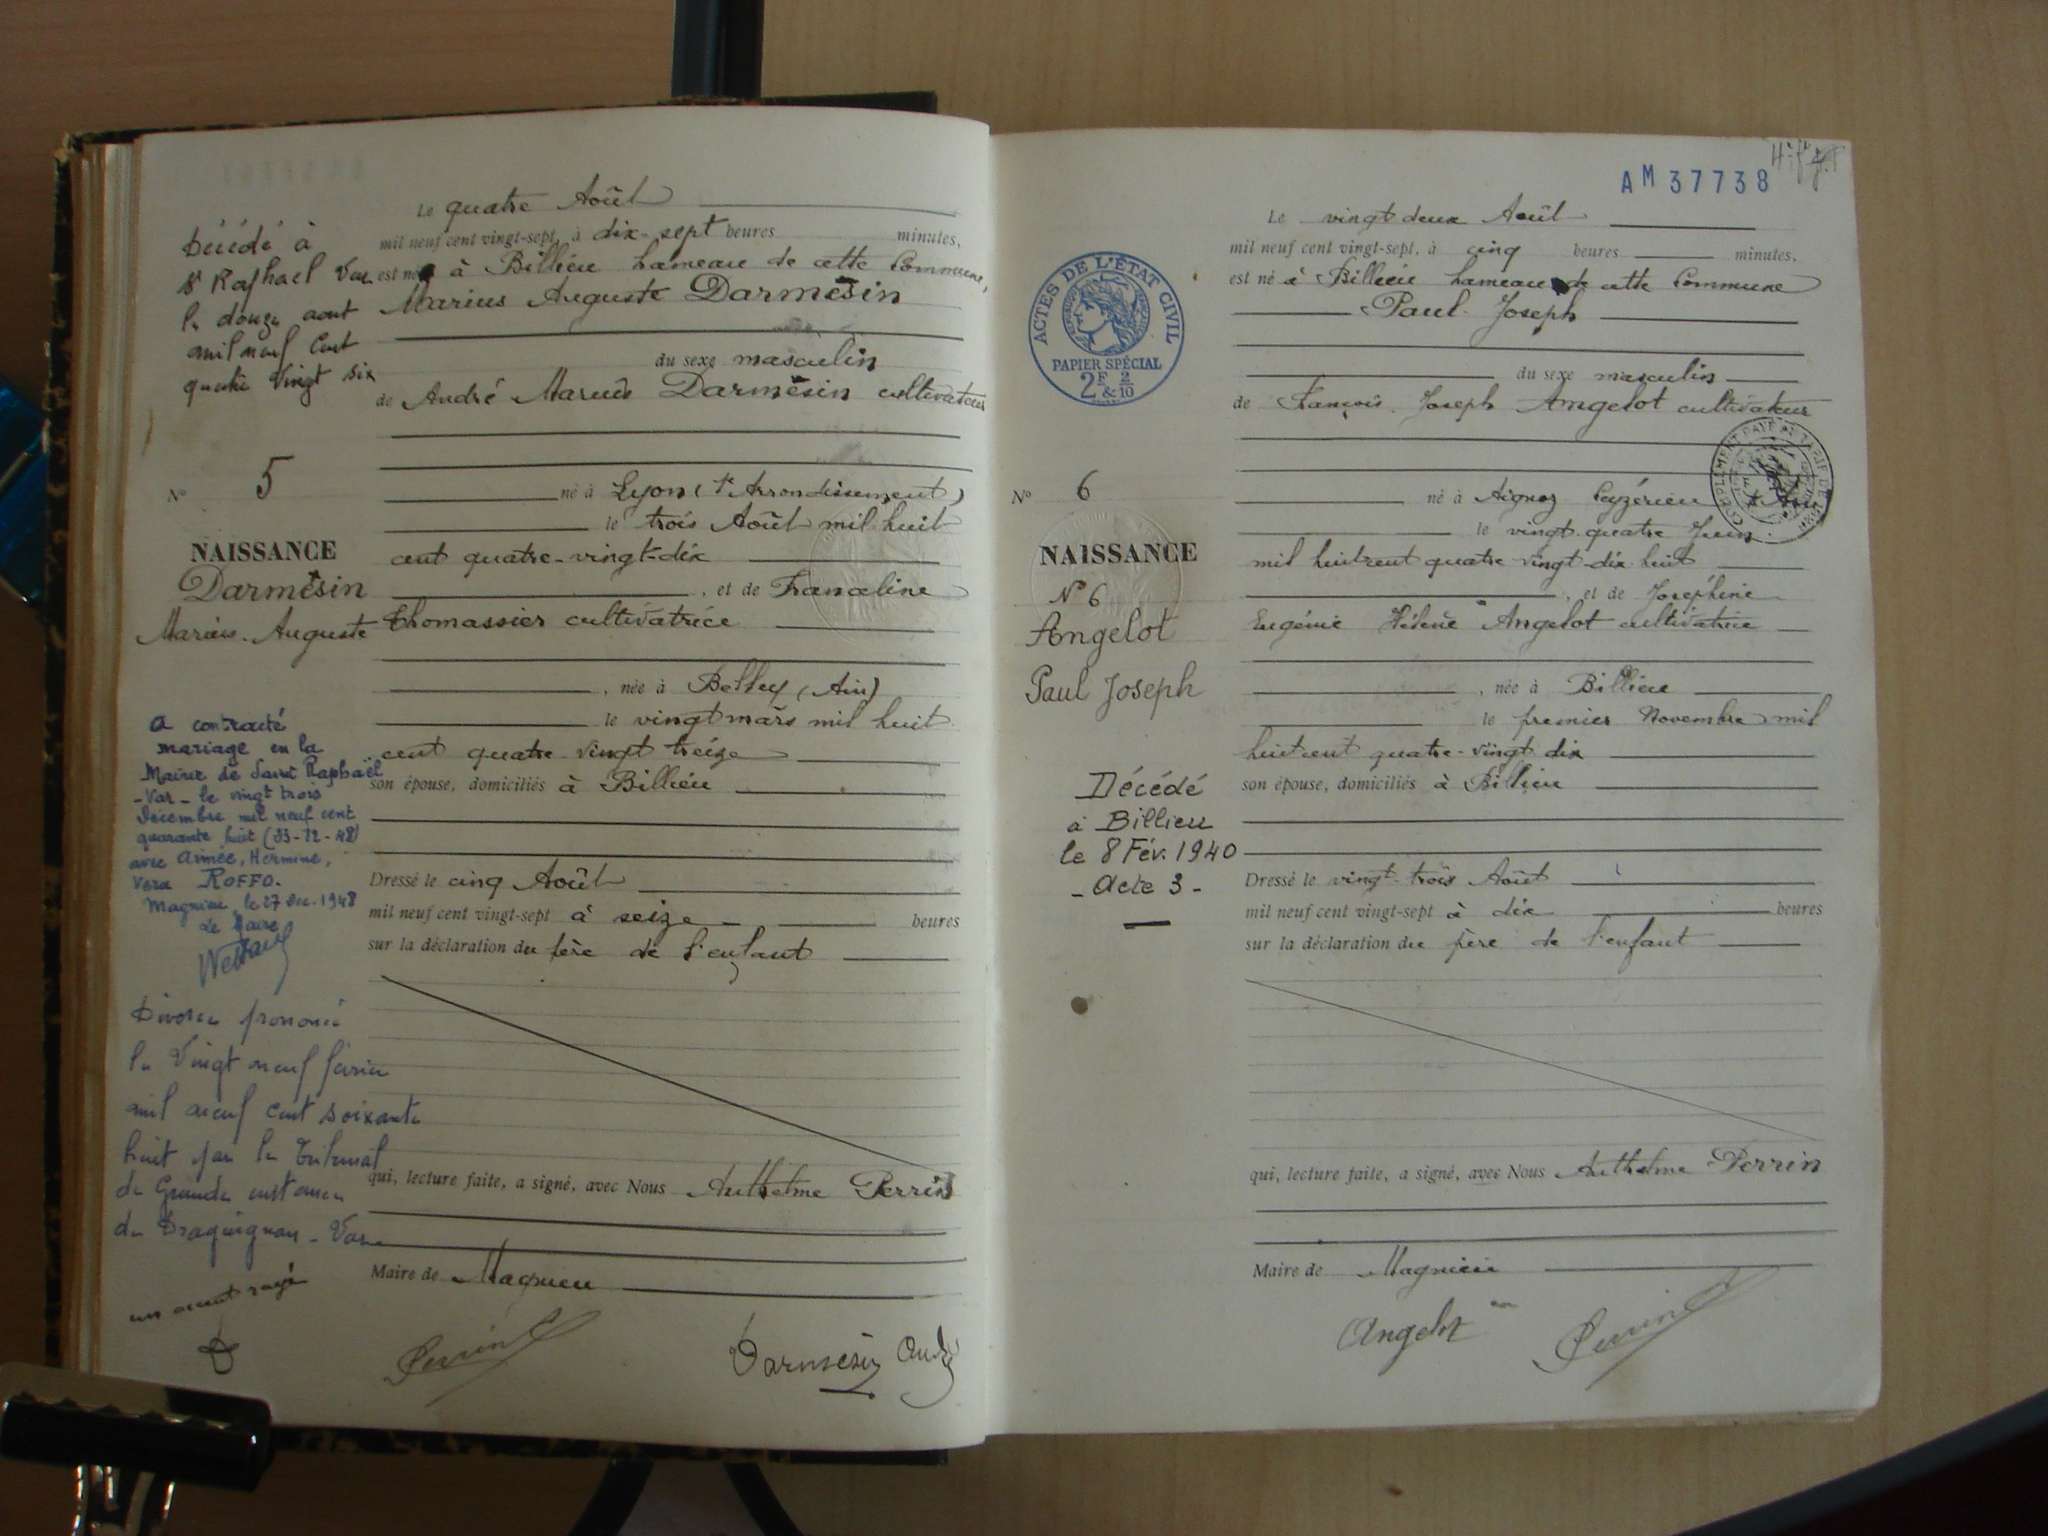 Le quatre Août
mil neuf cent vingt-sept, à dix-sept heures minutes,
est né à Billieu hameau de cette Commune,
Marius Auguste Darmesin
du sexe masculin
de André Marius Darmesin cultivateur
né à Lyon ( Arrondissement)
le trois Août mil huit
cent quatre-vingt-dix
, et de Franceline
Thomassier cultivatrice
, née à Belley (Ain)
le vingt mars mil huit
cent quatre vingt treize
son épouse, domiciliés à Billieu
Dressé le cinq Août
mil neuf cent vingt-sept à seize heures
sur la déclaration du père de l'enfant
qui, lecture faite, a signé, avec Nous Anthelme Perrin
Maire de Magnieu
Perrin
Darmesin André
Décédé à
St Raphael Var
le douze aout
mil neuf cent
quatre vingt six
N° 5
NAISSANCE
Darmesin
Marius. Auguste
a contracté
mariage en la
Mairie de Saint Raphaël
-Var- le vingt trois
Décembre mil neuf cent
quarante huit (23-12-48)
avec Aimée, Hermine,
Vera ROFFO.
Magnieu, le 27 Dec. 1948
Le Maire
Divorce prononcé
le Vingt neuf février
mil neuf cent soixante
huit par le Tribunal
de Grande instance
de Draguignan - Var
un accent rayé
AM 37738
Le vingt deux Août
mil neuf cent vingt-sept, à cinq heures minutes,
est né à Billieu hameau de cette Commune
Paul Joseph
du sexe masculin
de François Joseph Angelot cultivateur
né à Aignoz Ceyzérieu
le vingt-quatre Juin
mil huitcent quatre vingt-dix huit
, et de Joséphine
Eugénie Hélène Angelot cultivatrice
, née à Billieu
le premier Novembre mil
huitcent quatre-vingt dix
son épouse, domiciliés à Billieu
Dressé le vingt-trois Août
mil neuf cent vingt-sept à dix heures
sur la déclaration du père de l'enfant
qui, lecture faite, a signé, avec Nous Anthelme Perrin
Maire de Magnieu
Angelot
Perrin
ACTES DE L'ÉTAT CIVIL
PAPIER SPÉCIAL
2F & 2/10
N° 6
NAISSANCE
N° 6
Angelot
Paul Joseph
Décédé
à Billieu
le 8 Fév. 1940
- Acte 3 -